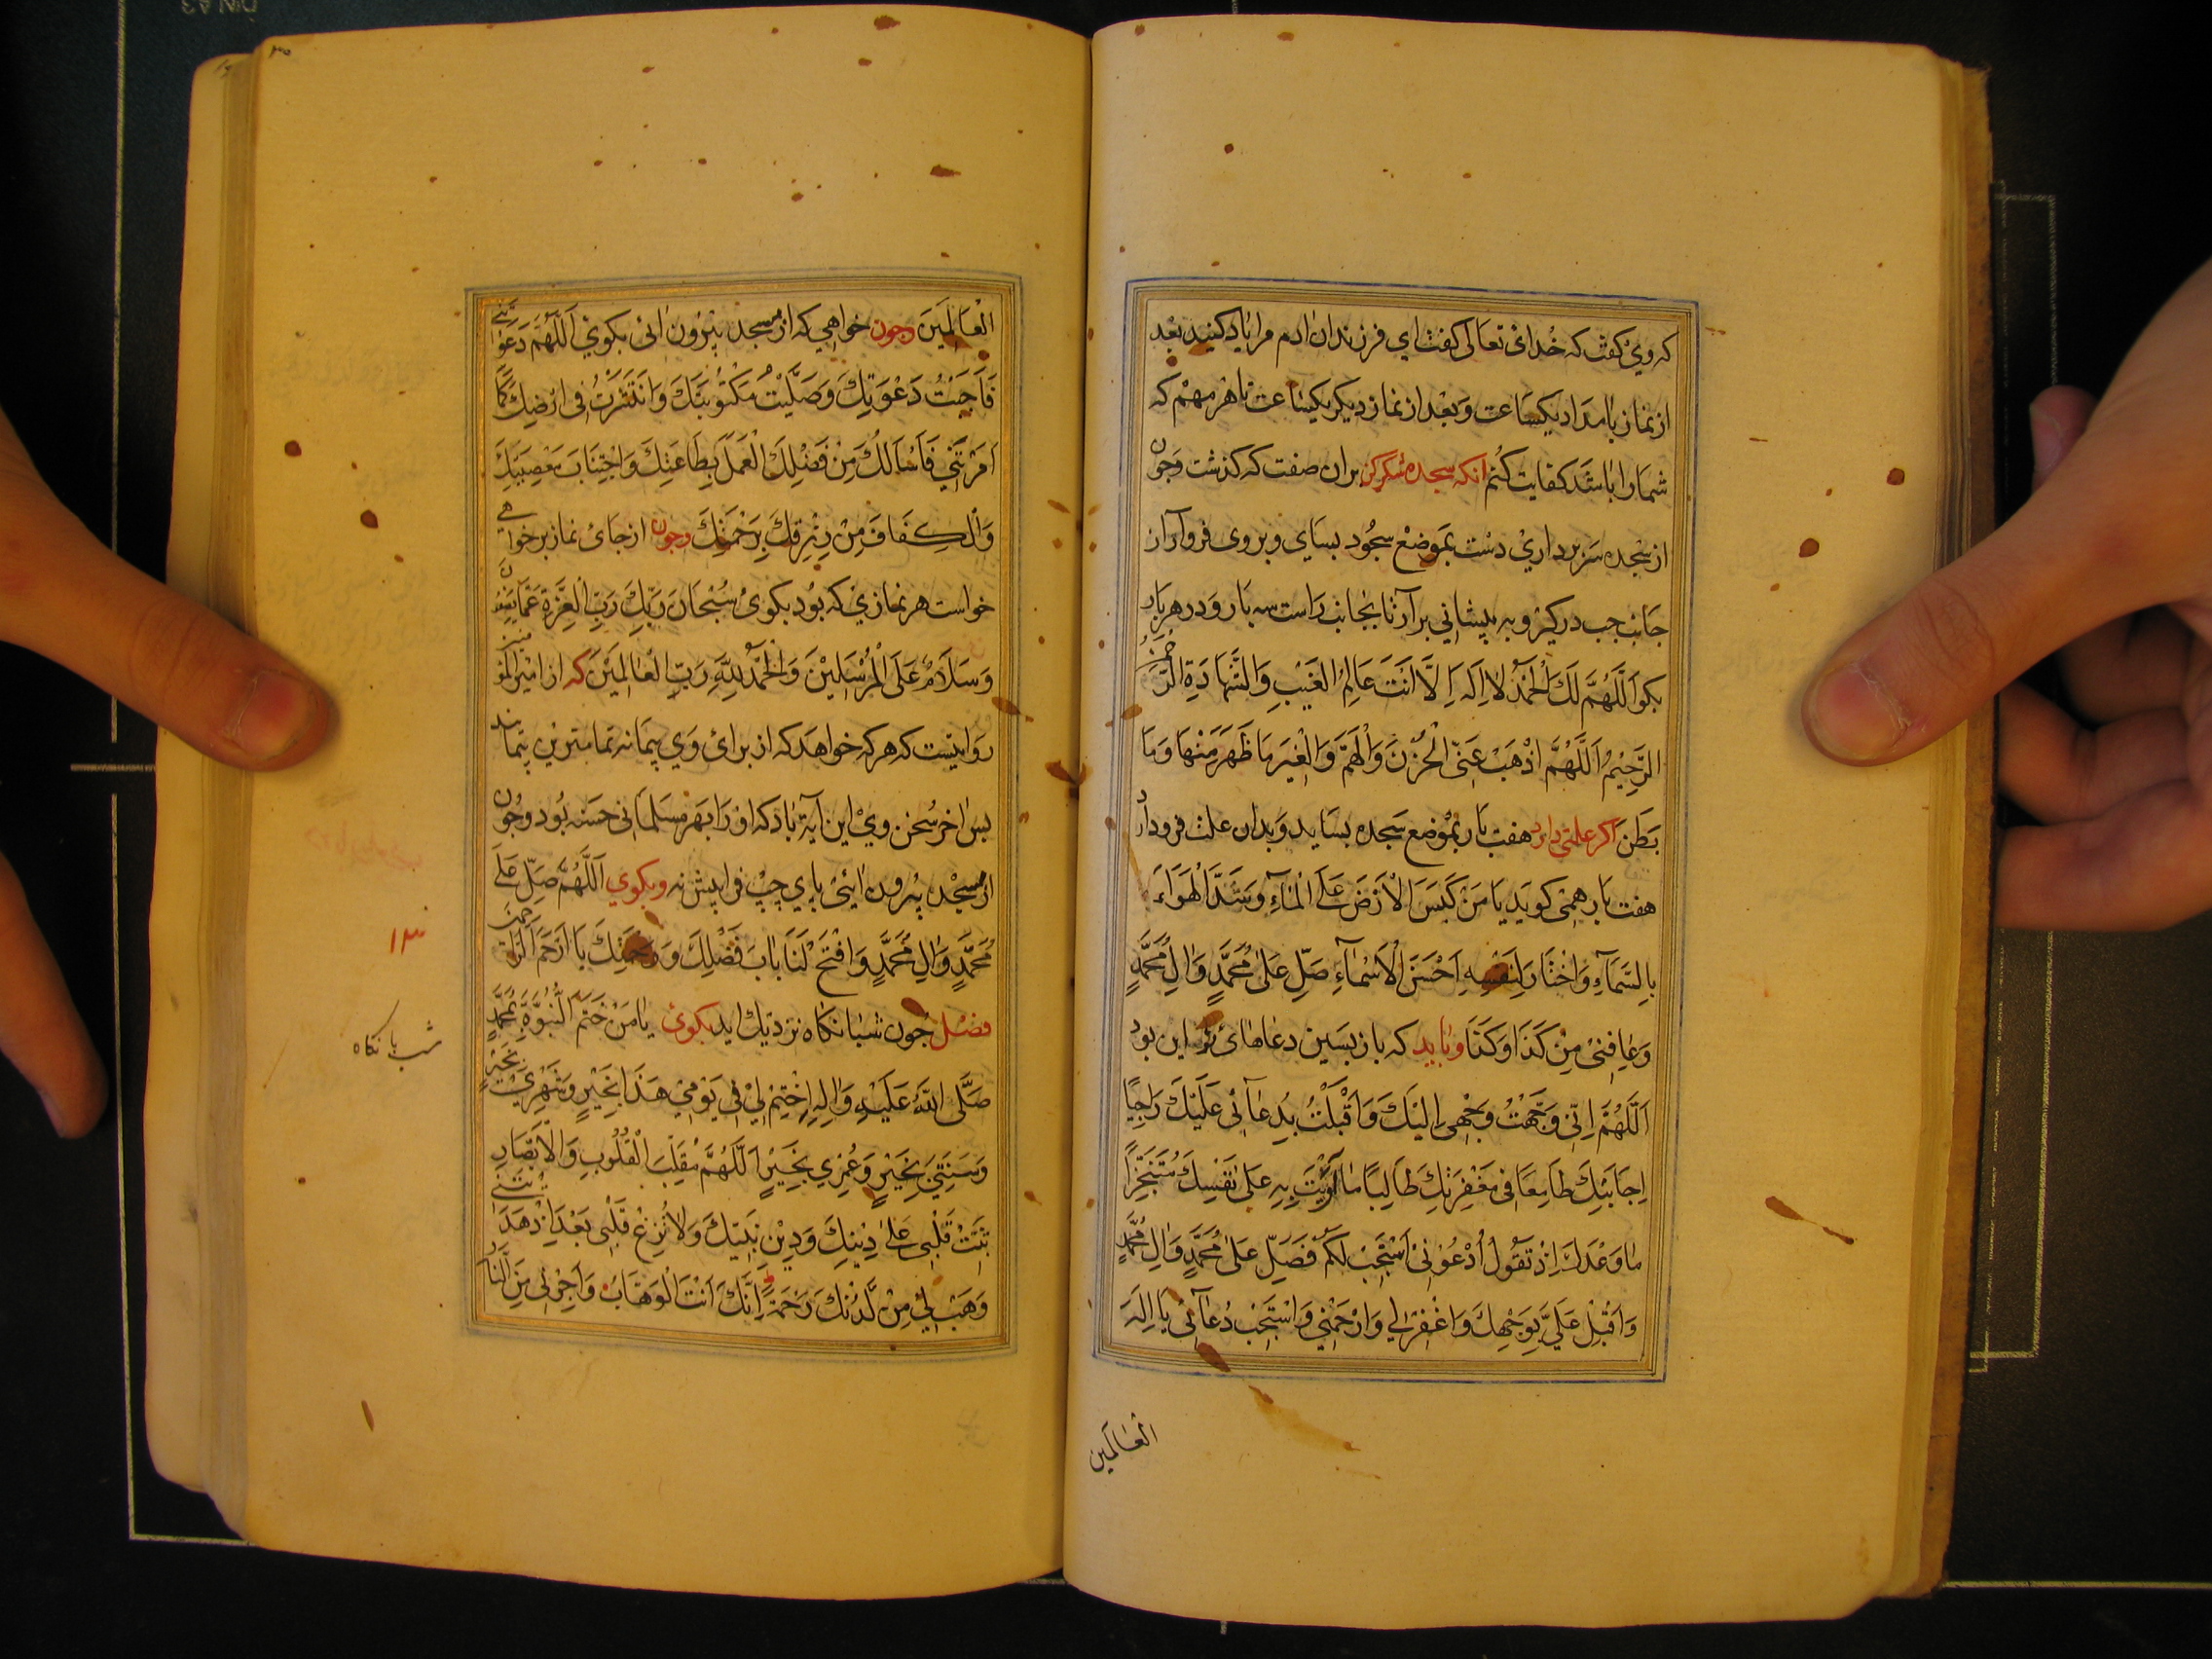 که وی گفت که خدای تعالی گفت ای فرزندان ادم مرا یاد کنید بعد
از نماز بامداد یکساعت و بعد از نماز دیگر یکساعت تا هر مهم که
شما را باشد کفایت کنم انکه سجده شکر کن بران صفت که گذشت و چون
از سجده سر برداری دست بموضع سجود بسای و بروی فرو آر از
جانب چپ در گیر و به پیشانی بر آر تا بجانب راست سه بار و در هر بار
بگو اَللَّهُمَّ لَكَ الْحَمْدُ لا اِلَهَ اِلَّا اَنْتَ عَالِمُ الْغَيْبِ وَالشَّهَادَةِ الرَّحْمنُ
الرَّحِيْمُ اَللَّهُمَّ اذْهَبْ عَنِّي الْحُزْنَ وَالْهَمَّ وَالْغِيَرَ مَا ظَهَرَ مِنْهَا وَمَا
بَطَنَ اگر علتی دارد هفت بار بموضع سجده بساید و بدان علت فرود آرد
هفت بار همی گوید يَا مَنْ كَبَسَ الْاَرْضَ عَلَى الْمَآءِ وَسَدَّ الْهَوَآءَ
بِالسَّمَآءِ وَاخْتَارَ لِنَفْسِهِ اَحْسَنَ الْاَسْمَآءِ صَلِّ عَلَى مُحَمَّدٍ وَالِ مُحَمَّدٍ
وَعَافِنِي مِنْ كَذَا وَكَذَا و باید که باز پسین دعاهای تو این بود
اَللَّهُمَّ اِنِّي وَجَّهْتُ وَجْهِي اِلَيْكَ وَاَقْبَلْتُ بِدُعَآئِي عَلَيْكَ رَاجِيًا
اِجَابَتِكَ طَامِعًا فِي مَغْفِرَتِكَ طَالِبًا مَا اَوْيَتَ بِهِ عَلَى نَفْسِكَ مُتَنَجِّزًا
مَا وَعْدَكَ اِذْ تَقُولُ اُدْعُوْنِي اَسْتَجِبْ لَكُمْ فَصَلِّ عَلَى مُحَمَّدٍ وَالِ مُحَمَّدٍ
وَاَقْبِلْ عَلَيَّ بِوَجْهِكَ وَاغْفِرْ لِي وَارْحَمْنِي وَاسْتَجِبْ دُعَآئِي يَا اِلَهَ
العالمین
الْعَالَمِيْنَ وچون خواهی که از مسجد بیرون ائی بگوی اَللَّهُمَّ دَعَوْتَنِي
فَاَجَبْتُ دَعْوَتِكَ وَصَلَّيْتُ مَكْتُوبَتَكَ وَانْتَشَرْتُ فِي اَرْضِكَ كَمَا
اَمَرْتَنِي فَاَسْاَلُكَ مِنْ فَضْلِكَ الْعَمَلَ بِطَاعَتِكَ وَاجْتِنَابَ مَعْصِيَتِكَ
وَالْكَفَافَ مِنْ رِزْقِكَ بِرَحْمَتِكَ وچون از جای نماز بر خواهی
خواست هر نمازی که بود بگوی سُبْحَانَ رَبِّكَ رَبِّ الْعِزَّةِ عَمَّا يَصِفُونَ
وَسَلَامٌ عَلَى الْمُرْسَلِيْنَ وَالْحَمْدُ لِلَّهِ رَبِّ الْعَالَمِيْنَ که از امیر المومنین
روایتست که هر که خواهد که از برای وی پیمانه تمامترین پیمایند
پس اخر سخن وی این آیة باد که او را بهر مسلمانی حسنه بود و چون
از مسجد بیرون ائی پای چپ فرا پیش نه و بگوی اَللَّهُمَّ صَلِّ عَلَى
مُحَمَّدٍ وَالِ مُحَمَّدٍ وَافْتَحْ لَنَا بَابَ فَضْلِكَ وَرَحْمَتِكَ يَا اَرْحَمَ الرَّاحِمِيْنَ
فصل چون شبانکاه نزدیك اید بگوی يَا مَنْ خَتَمَ النُّبُوَّةَ بِمُحَمَّدٍ
صَلَّى اللَّهُ عَلَيْهِ وَالِهِ اِخْتِمْ لِي فِي يَوْمِي هَذَا بِخَيْرٍ وَشَهْرِيْ بِخَيْرٍ
وَسَنَتِي بِخَيْرٍ وَعُمْرِي بِخَيْرٍ اَللَّهُمَّ مُقَلِّبَ الْقُلُوبِ وَالْاَبْصَارِ
ثَبِّتْ قَلْبِي عَلَى دِيْنِكَ وَدِيْنِ نَبِيِّكَ وَلَا تُزِغْ قَلْبِي بَعْدَ اِذْ هَدَيْتَنِي
وَهَبْ لِي مِنْ لَّدُنْكَ رَحْمَةً اِنَّكَ اَنْتَ الْوَهَّابُ وَاَجِرْنِي مِنَ النَّارِ
شبانکاه